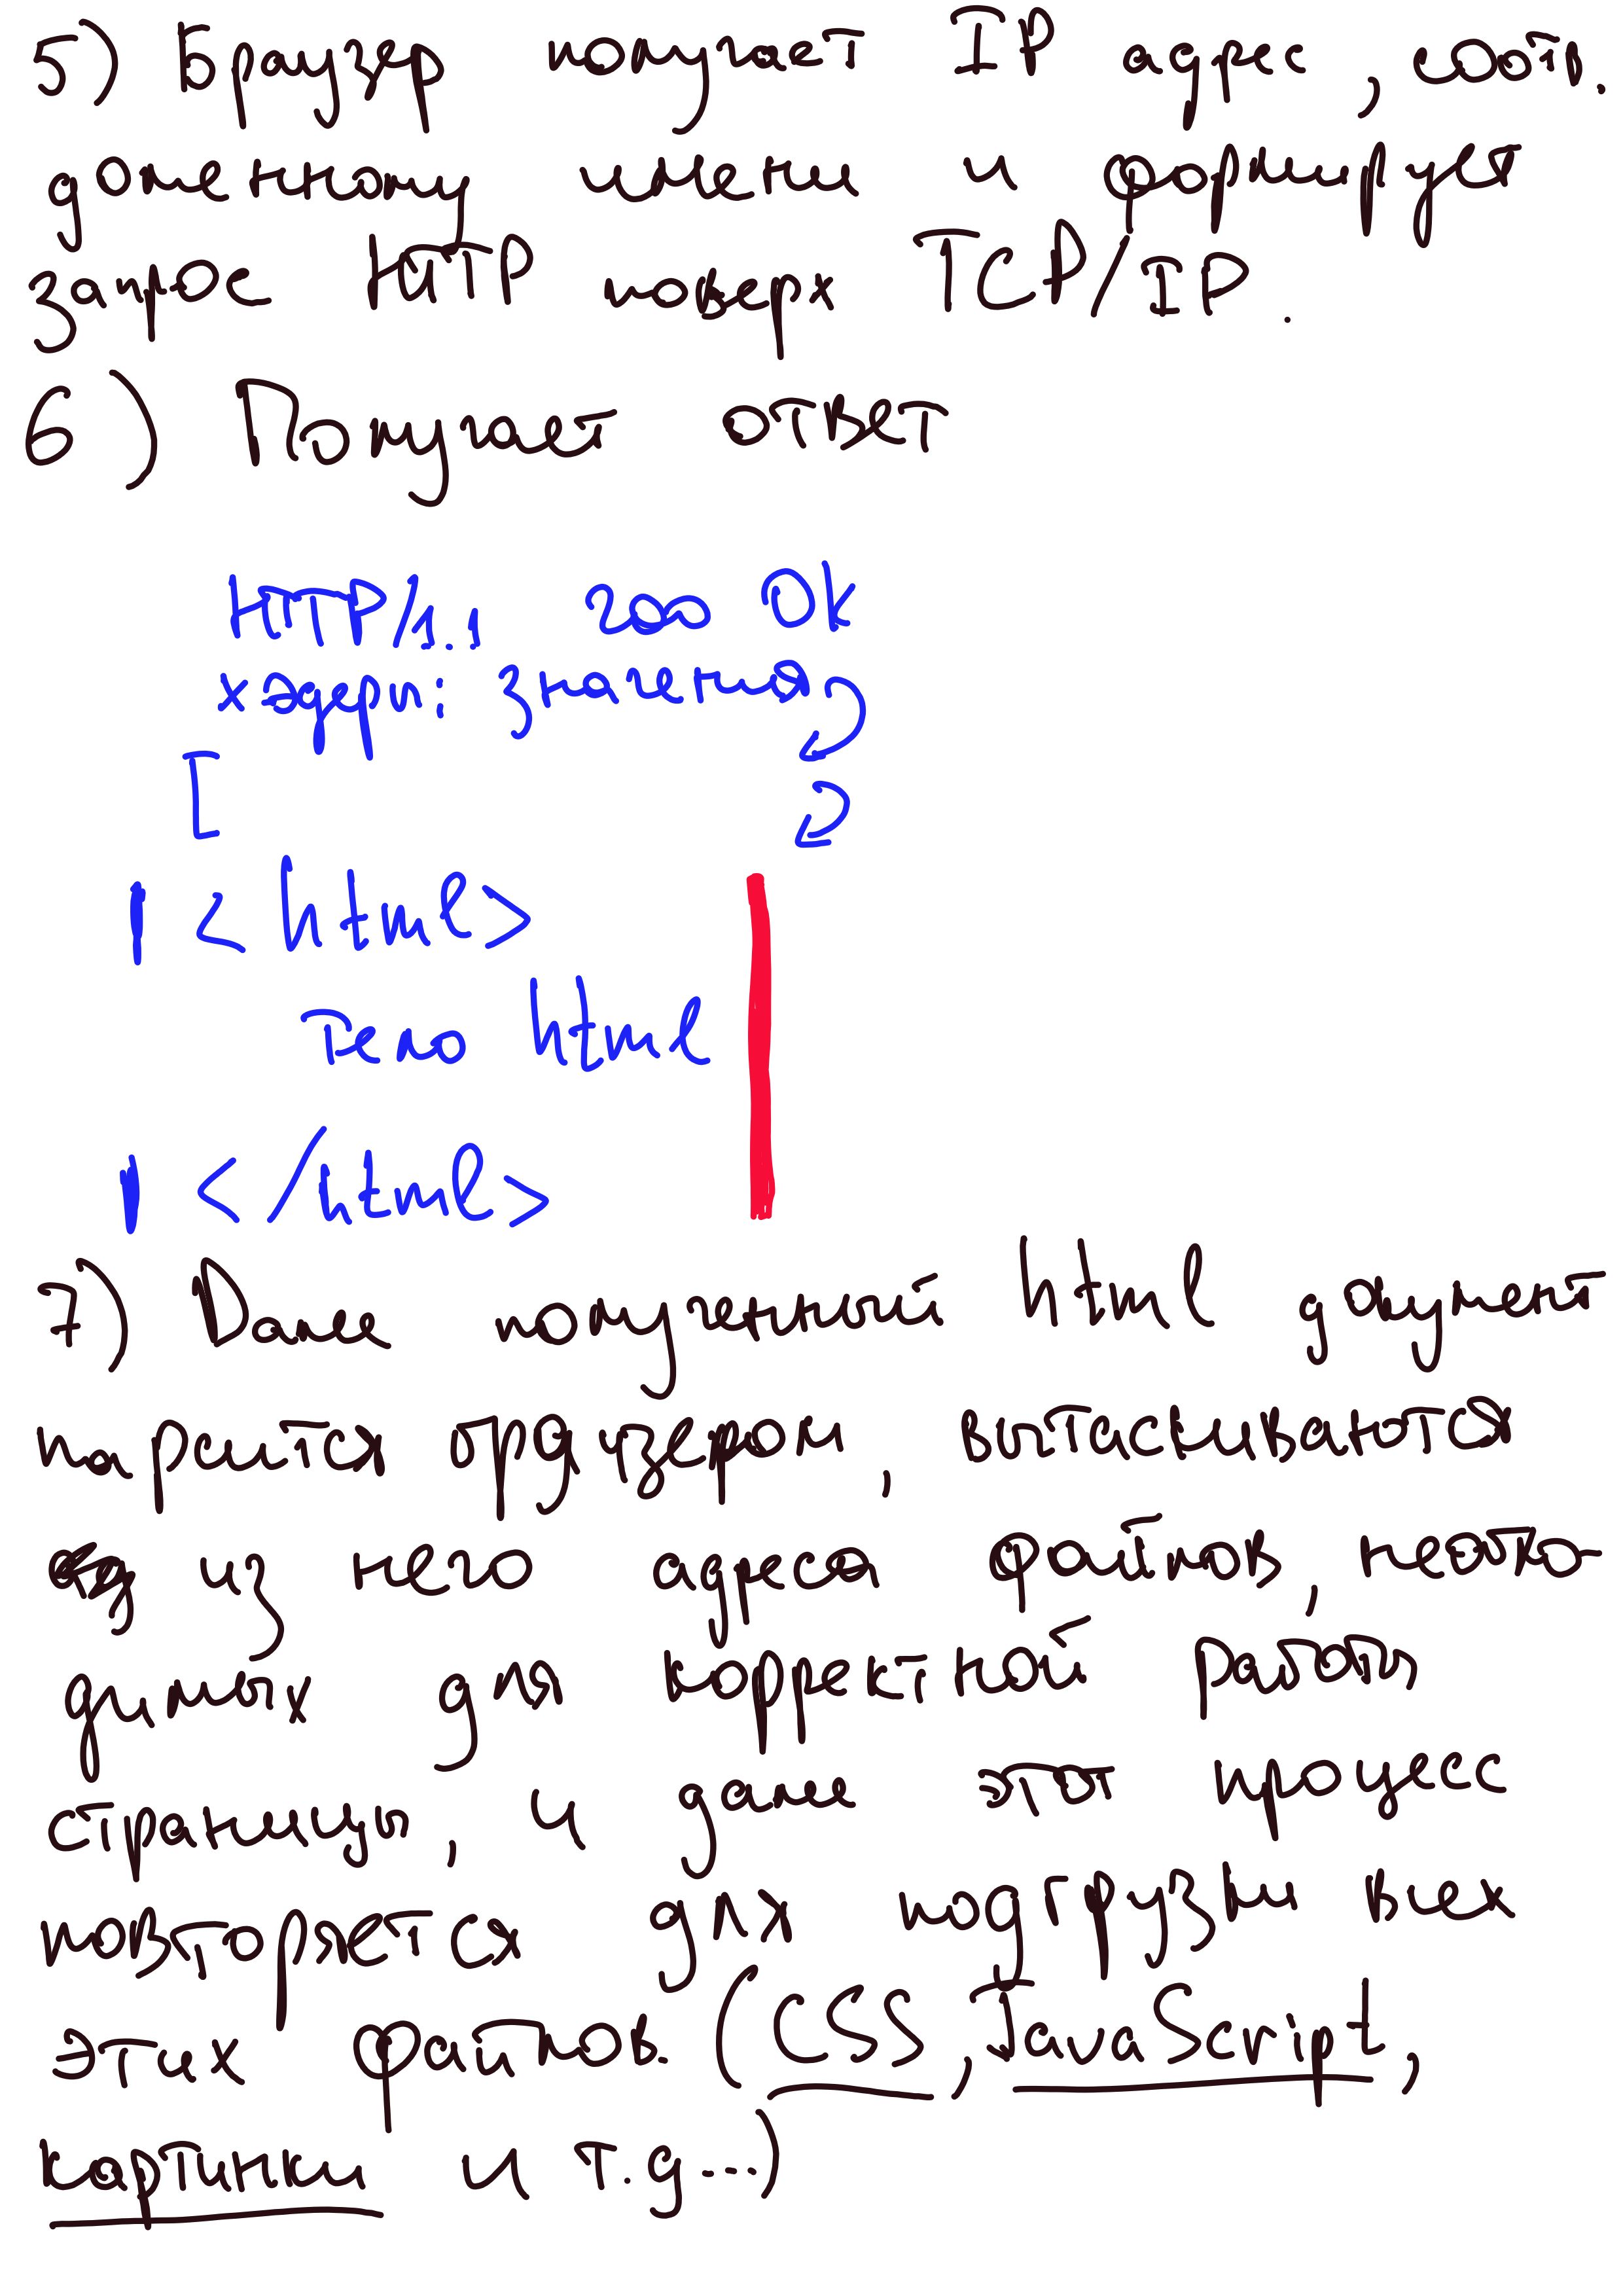 5) Браузер получает IP адрес, соотв.
доменному имени и формирует
запрос HTTP поверх TCP/IP.
6) Получает ответ
HTTP/1.1 200 Ok
хэдеры: значения
[
<html>
тело html
</html>
7) Далее полученный html документ
парсится браузером, вытаскиваются
из него адреса файлов, необхо-
димых для корректной работы
страницы, и далее этот процесс
повторяется для подгрузки всех
этих файлов (CSS, JavaScript,
картинки и т.д...)